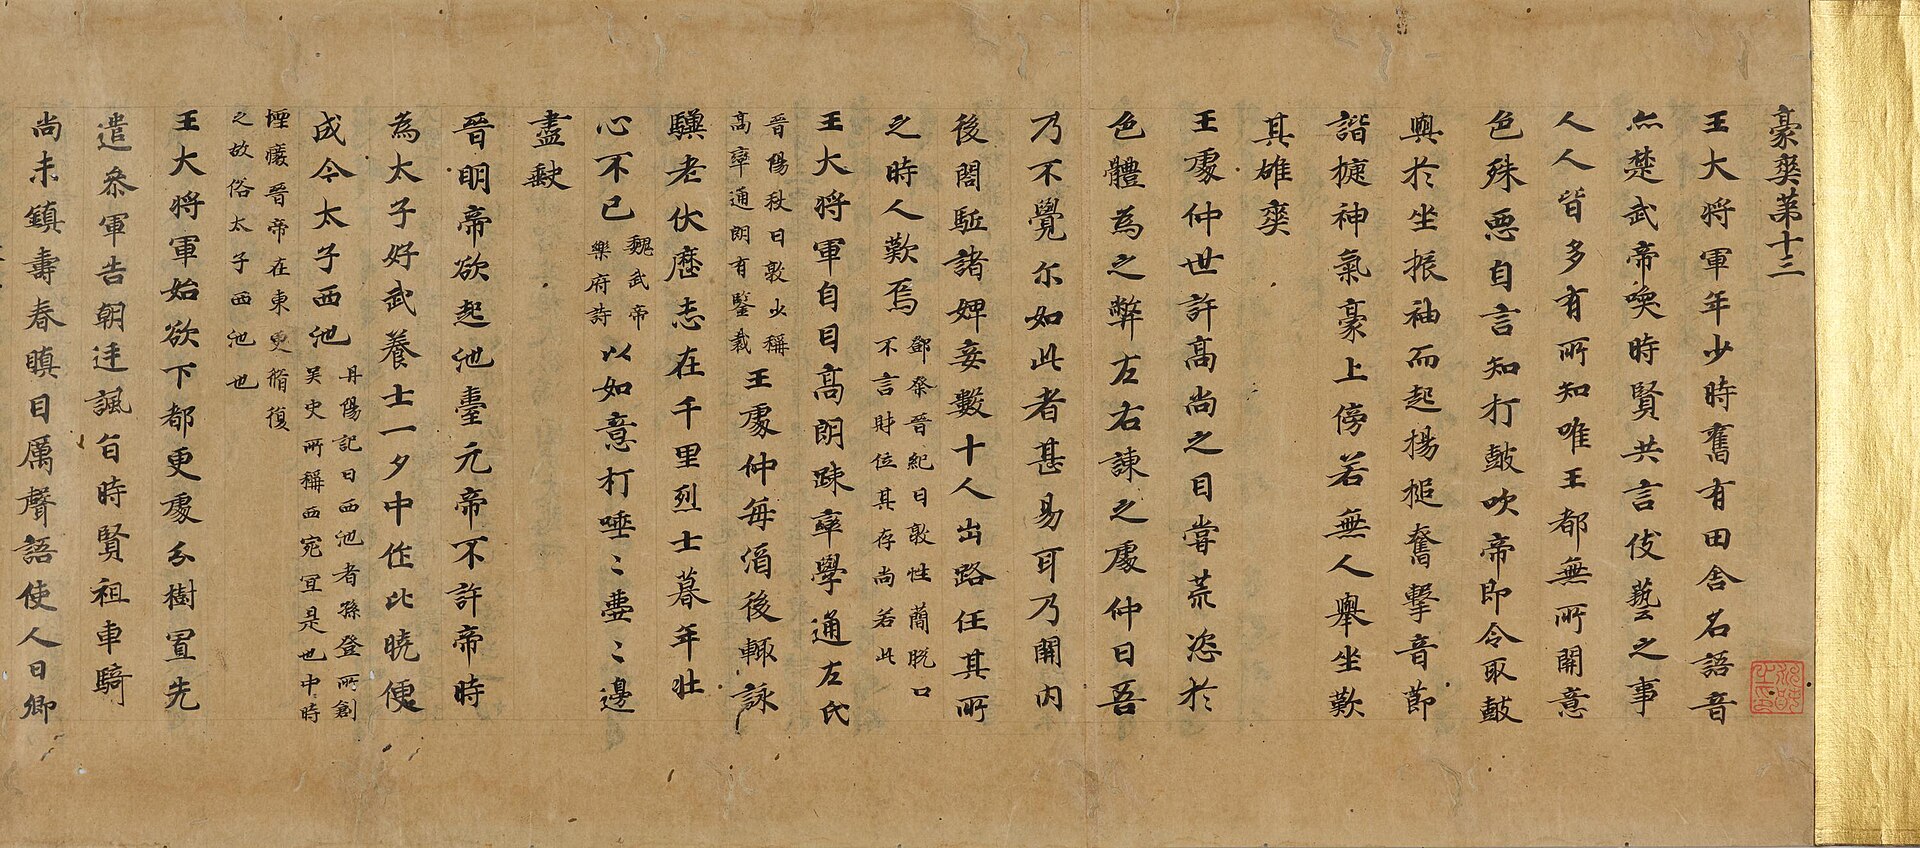 豪爽第十三
王大将軍年少時舊有田舍名語音
亦楚武帝喚時賢共言伎藝之事
人人皆多有所知唯王都無所開意
色殊惡自言知打鼓吹帝即令取鼓
與於坐振袖而起揚槌奮擊音節
諧捷神氣豪上傍若無人舉坐歎
其雄爽
王處仲世許高尚之目嘗荒恣於
色體為之弊左右諫之處仲曰吾
乃不覺尓如此者甚易耳乃開内
後閤駈諸婢妾數十人出路任其所
之時人歎焉鄧粲晉紀曰敦性蕳脱口不言財位其存尚若此
王大将軍自目高朗踈率學通左氏
晉陽秋曰敦少稱高率通朗有鑒裁王處仲每酒後輙詠
驥老伏歷志在千里烈士暮年壮
心不已魏武帝樂府詩以如意打唾〻壺〻邊
盡缺
晉明帝欲起池臺元帝不許帝時
為太子好武養士一夕中作比曉便
成今太子西池丹陽記曰西池者孫登所創吴史所稱西宛冝是也中時
堙廢晉帝在東更脩復之故俗太子西池也
王大将軍始欲下都更處分樹置先
遣叅軍告朝廷諷旨時賢祖車騎
尚未鎮壽春瞋目厲聲語使人曰卿